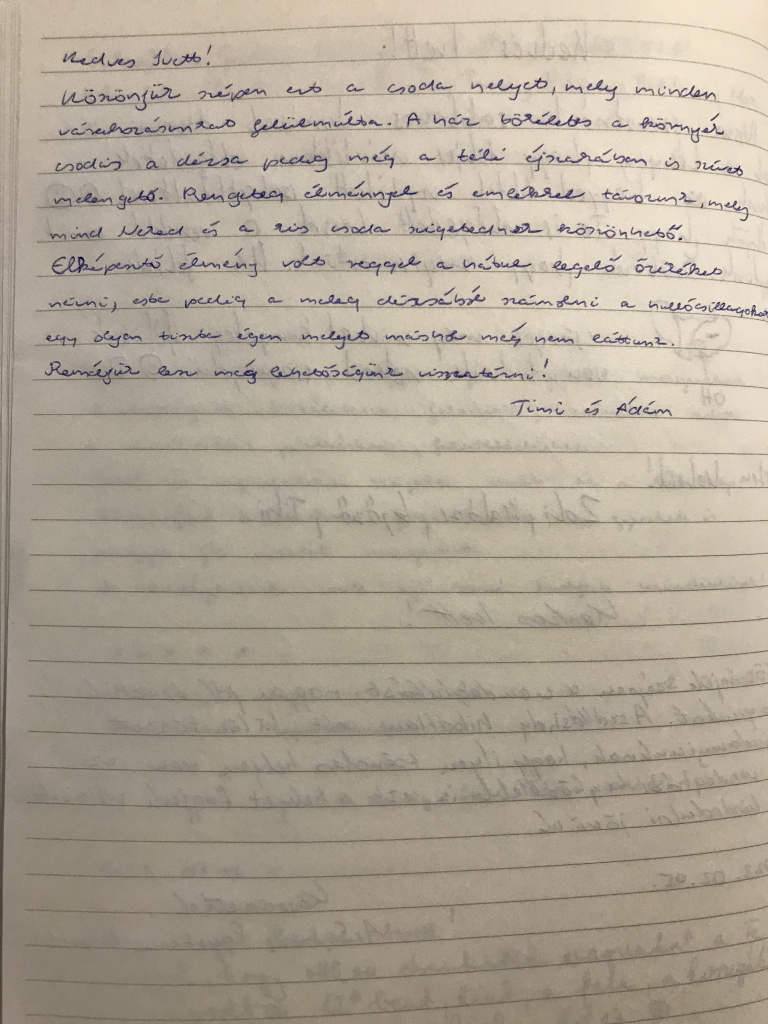 Kedves Ivett!
Köszönjük szépen ezt a csoda helyet, mely minden
várakozásunkat felülmúlta. A ház tökéletes a környék
csodás a dézsa pedig még a téli éjszakában is szívet
melengető. Rengeteg élménnyel és emlékkel távozunk, mely
mind Neked és a kis csoda szigetednek köszönhető.
Elképesztő élmény volt reggel a hátul legelő őzikéket
nézni, este pedig a meleg dézsából számolni a hullócsillagokat
egy olyan tiszta égen melyet máshol még nem láttunk.
Reméljük lesz még lehetőségünk visszatérni!
Timi és Ádám